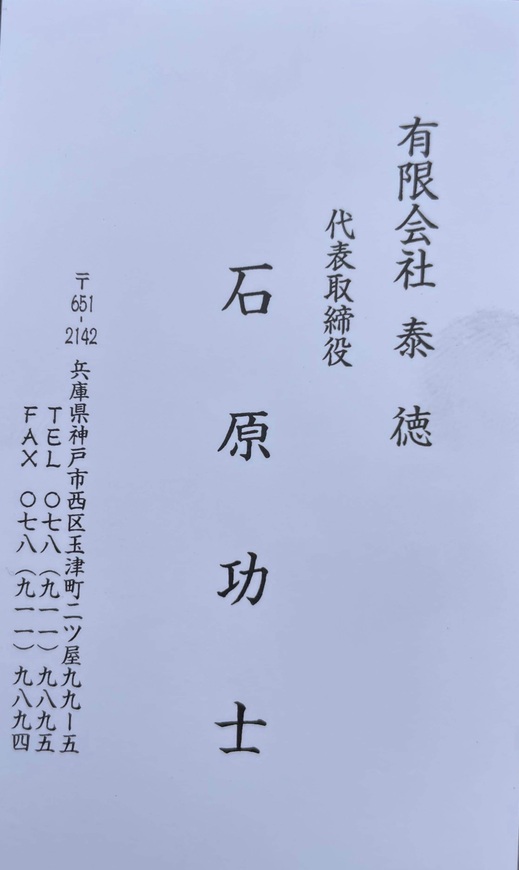 有限会社 泰徳
代表取締役
石原功士
〒651-2142 兵庫県神戸市西区玉津町二ツ屋九九ー五
TEL 〇七八(九一一)九八九五
FAX 〇七八(九一一)九八九四